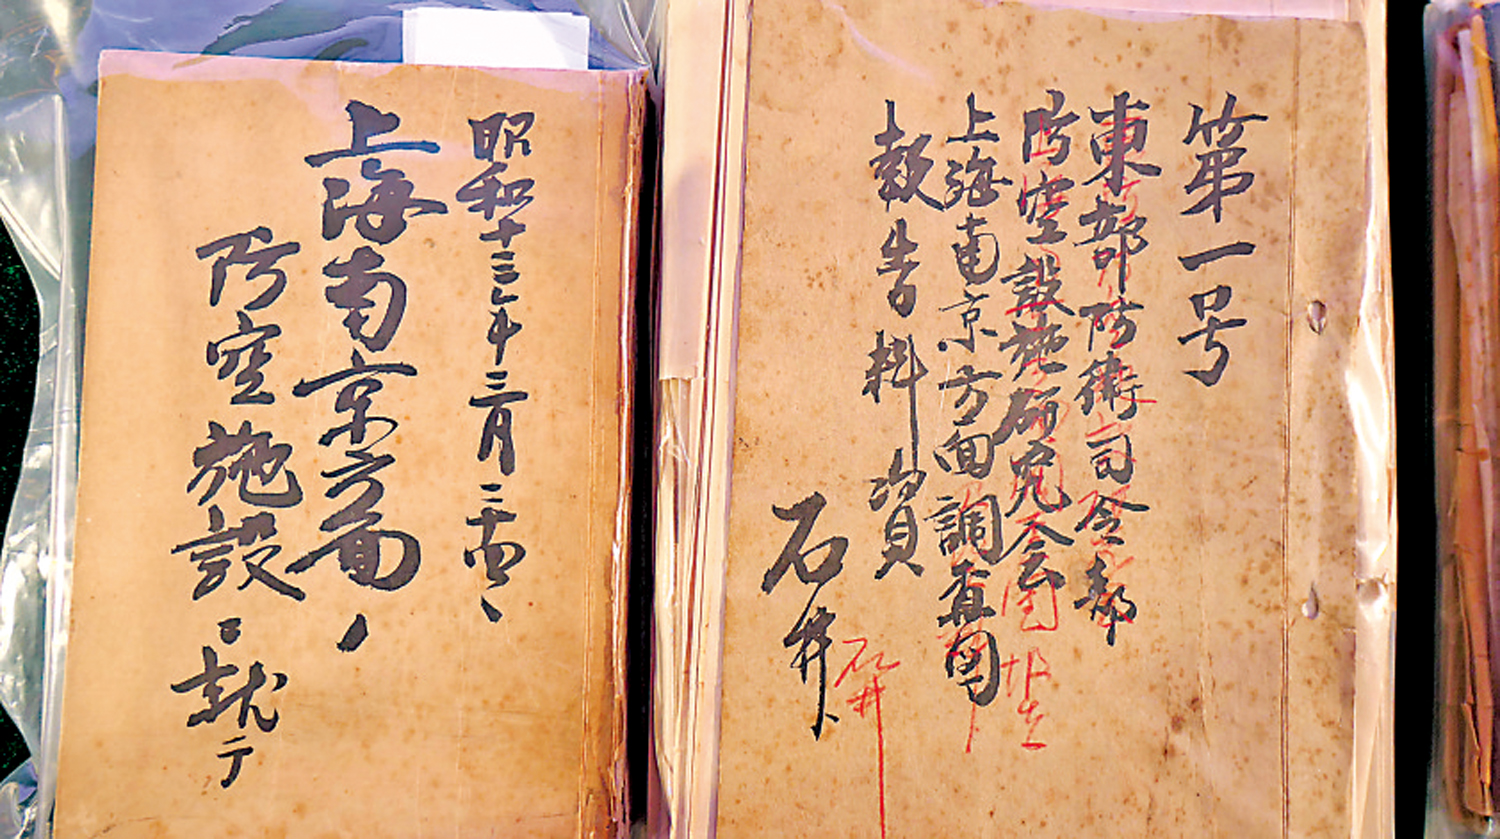 第一号
東部防衛司令部
防空設施研究会
上海南京方面調査団
報告資料
石井
石井
昭和十三年三月二十四
上海南京方面ノ
防空施設ニ就テ